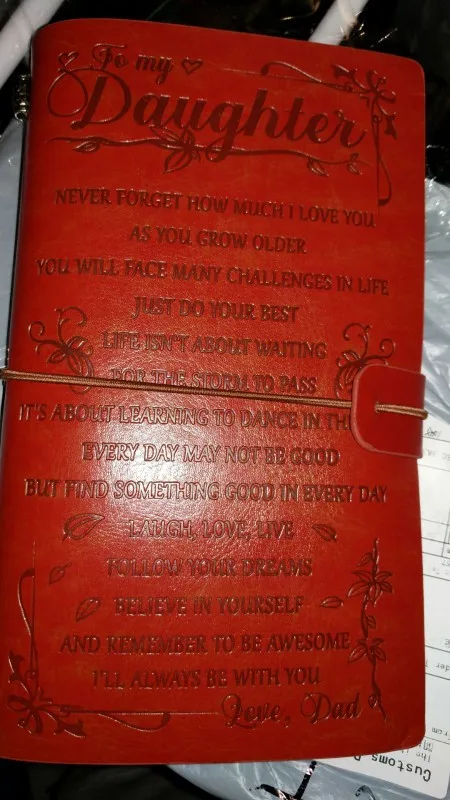 To my
Daughter
NEVER FORGET HOW MUCH I LOVE YOU
AS YOU GROW OLDER
YOU WILL FACE MANY CHALLENGES IN LIFE
JUST DO YOUR BEST
LIFE ISN'T ABOUT WAITING
FOR THE STORM TO PASS
IT'S ABOUT LEARNING TO DANCE IN TH
EVERY DAY MAY NOT BE GOOD
BUT FIND SOMETHING GOOD IN EVERY DAY
LAUGH, LOVE, LIVE
FOLLOW YOUR DREAMS
BELIEVE IN YOURSELF
AND REMEMBER TO BE AWESOME
I'LL ALWAYS BE WITH YOU
Love, Dad
Customs